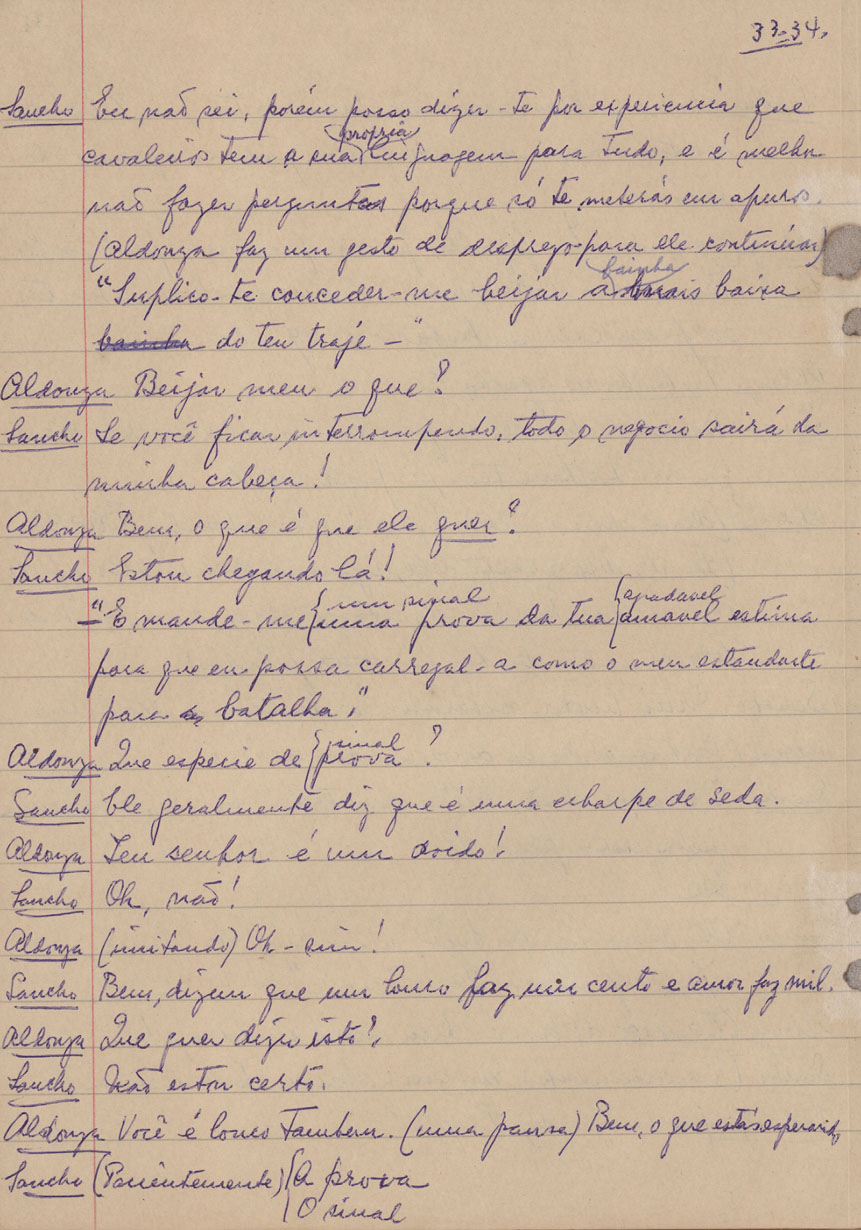 33-34.
Sancho Eu não sei, porém posso dizer-te por experiencia que
propria
cavaleiros tem a sua linguagem para tudo, e é melhor
não fazer perguntas porque só te meterás em apuros.
(Aldonza faz um gesto de desprezo para ele continuar)
bainha
"Suplico-te conceder-me beijar a mais baixa
bainha do teu traje —"
Aldonza Beijar meu o que?
Sancho Se você ficar interrompendo, todo o negocio sairá da
minha cabeça!
Aldonza Bem, o que é que ele quer?
Sancho Estou chegando lá!
um sinal agradavel
"E mande-me uma prova da tua amavel estima
para que eu possa carregal-a como o meu estandarte
para batalha."
sinal
Aldonza Que especie de prova?
Sancho Ele geralmente diz que é uma echarpe de seda.
Aldonza Seu senhor é um doido!
Sancho Oh, não!
Aldonza (imitando) Oh - sim!
Sancho Bem, dizem que um louco faz um cento e amor faz mil.
Aldonza Que quer dizer isto?
Sancho Não estou certo.
Aldonza Você é louco tambem. (uma pausa) Bem, o que estás esperando
Sancho (Pacientemente) A prova
O sinal